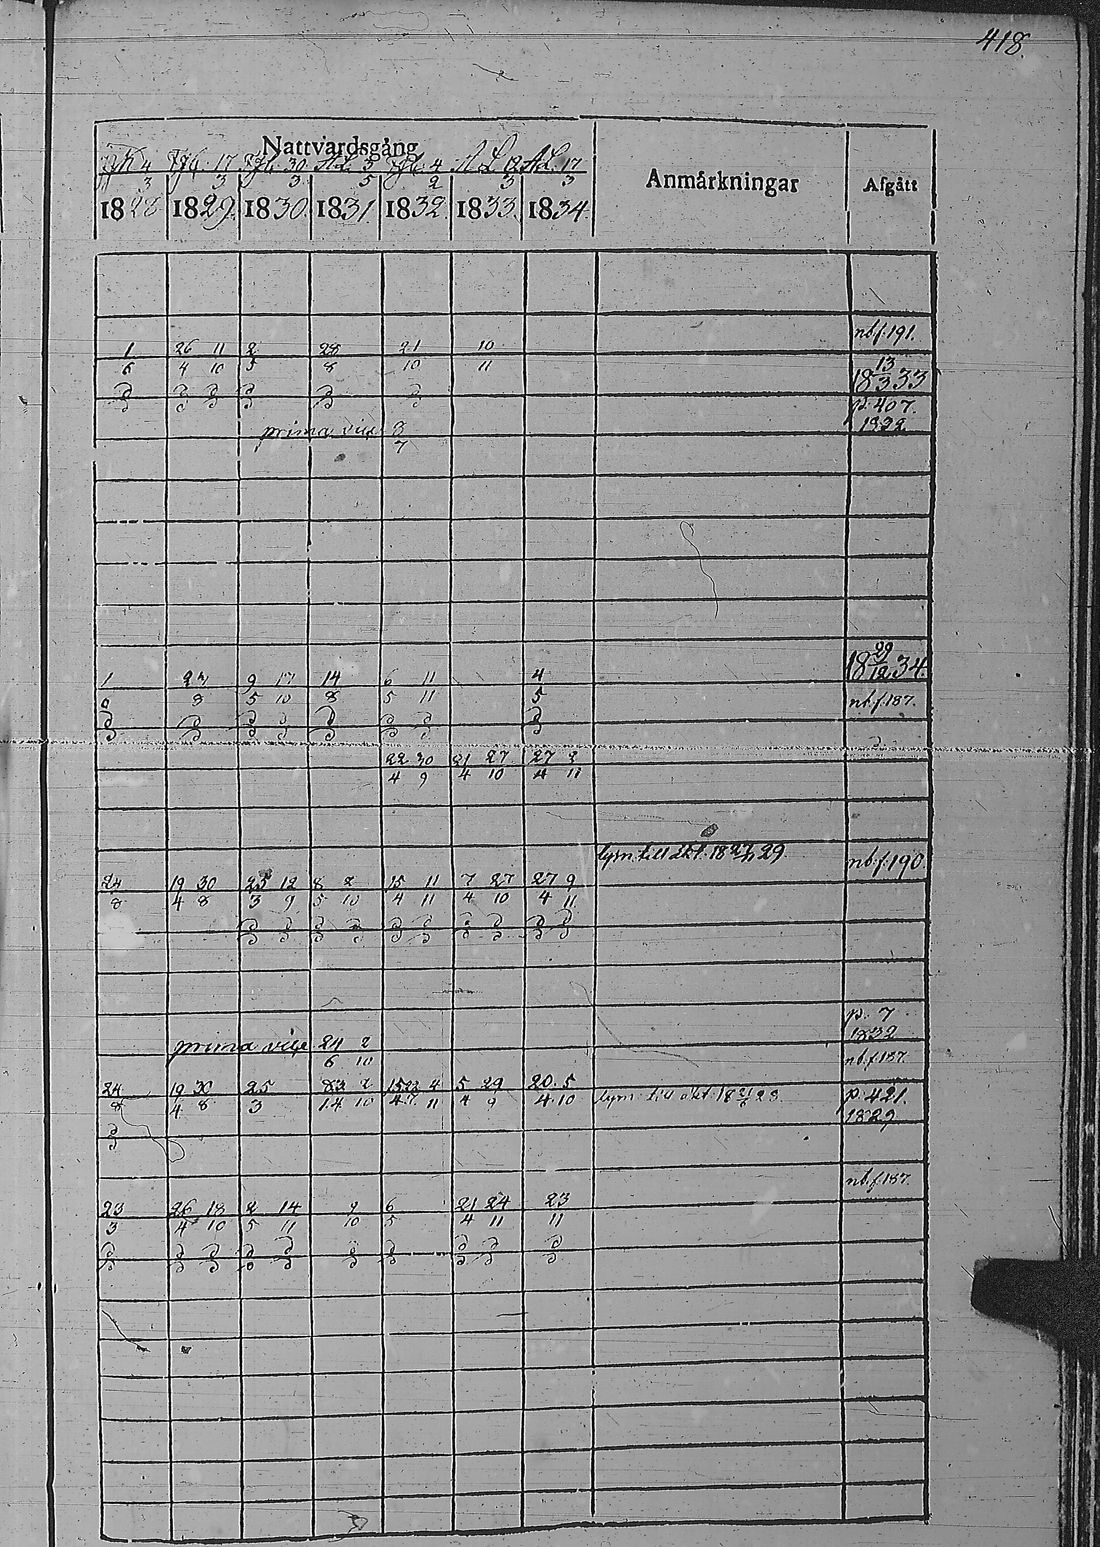 418
Nattvardsgång
Anmärkningar
Afgått
4 17 30 4 A.L. 12 A.L. 17
3 3 3 5 2 3 3
1828 1829. 1830. 1831. 1832. 1833. 1834.
nb.f.191.
1 26 11 2 28 21 10
6 4 10 5 8 10 11
18 13/3 33
p. 407.
1832
prima vice 8
7
18 29/12 34.
1 9 17 14 6 11 4
8 5 10 8 5 11 5
nb.f.187.
22 30 21 27 27 2
4 9 4 10 4 11
till 29.
nb.f.190
24 19 30 25 12 8 2 15 11 7 27 27 9
8 4 8 3 9 5 10 4 11 4 10 4 11
p. 7
1832
prima vice 24 2
6 10
nb.f.187
24 19 30 25 2 4 5 29 20. 5
8 4 8 3 14 10 11 4 9 4. 10
till 28
p. 421.
1829
nb.f.187.
23 26 18 2 14 9 6 21 24 23
3 4 10 5 11 10 5 4 11 11